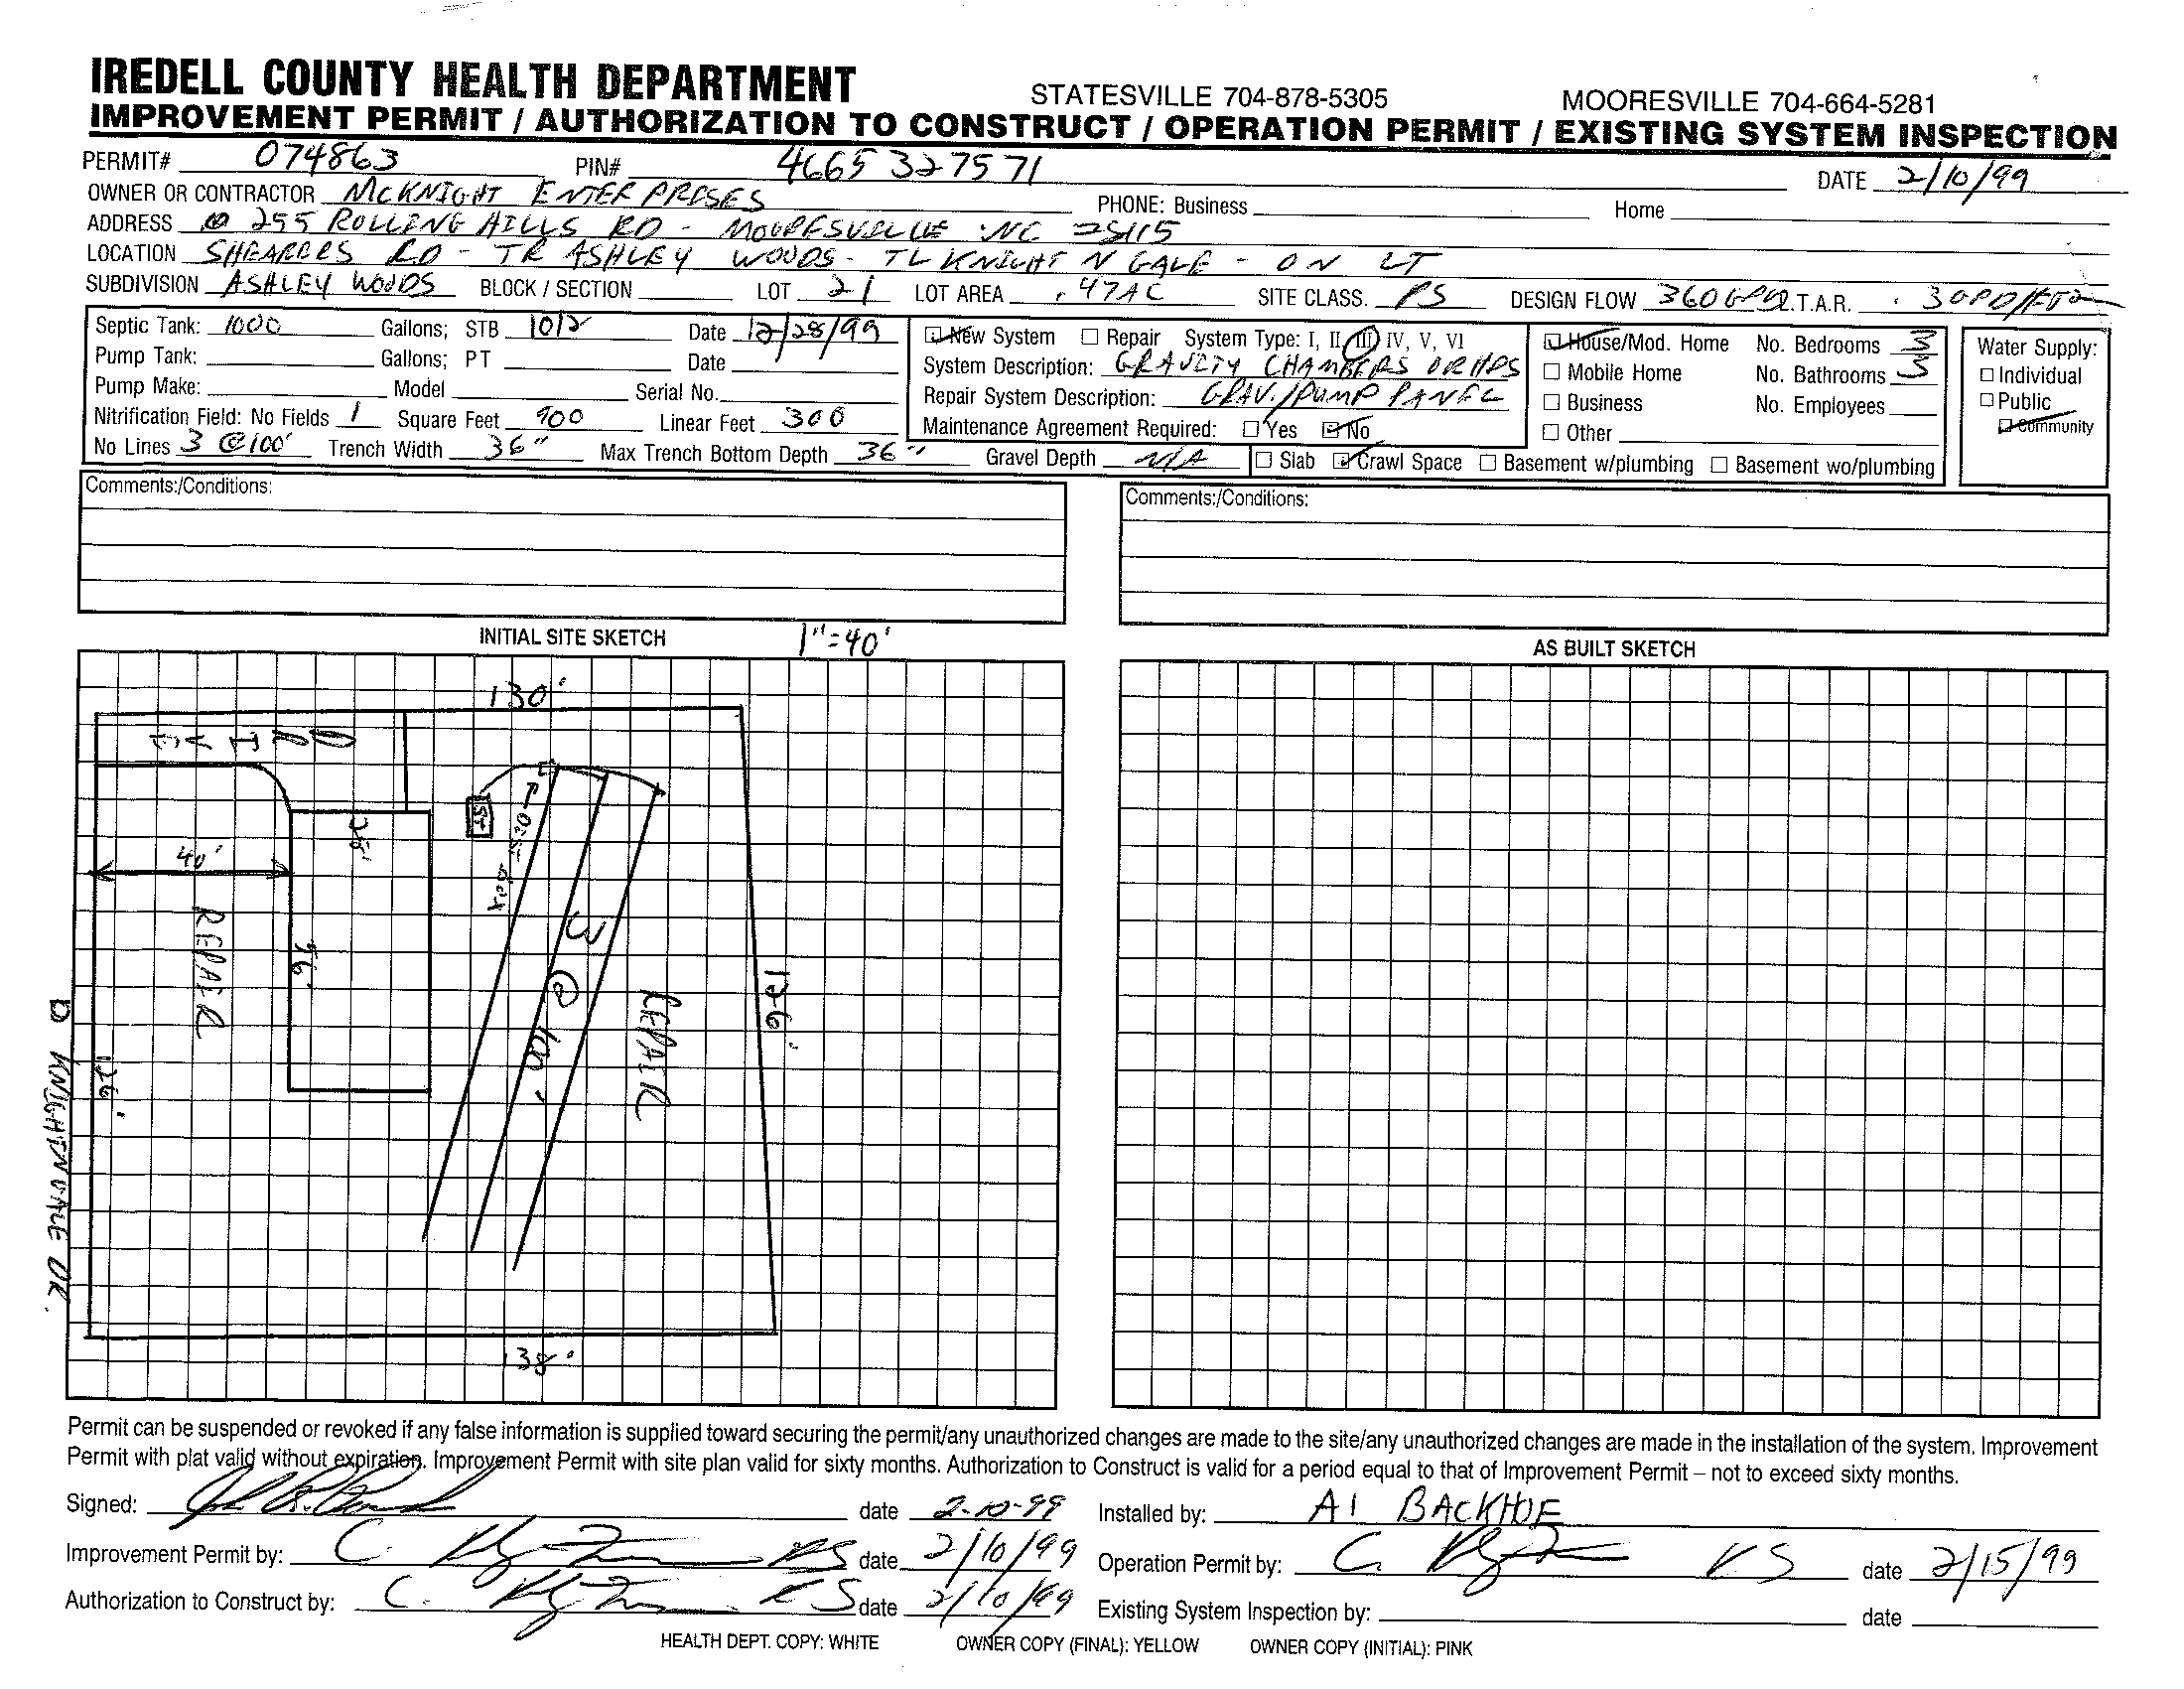 IREDELL COUNTY HEALTH DEPARTMENT STATESVILLE 704-878-5305 MOORESVILLE 704-664-5281
IMPROVEMENT PERMIT / AUTHORIZATION TO CONSTRUCT / OPERATION PERMIT / EXISTING SYSTEM INSPECTION
PERMIT# 074863 PIN# 4665 32 7571 DATE 2/10/99
OWNER OR CONTRACTOR MCKNIGHT ENTERPRISES PHONE: Business Home
ADDRESS 255 ROLLING HILLS RD - MOORESVILLE NC 28115
LOCATION SHEARERS RD - TR ASHLEY WOODS - TL KNIGHT N GALE - ON LT
SUBDIVISION ASHLEY WOODS BLOCK / SECTION LOT 21 LOT AREA .47AC SITE CLASS. PS DESIGN FLOW 360 GPD L.T.A.R. .3 GPD/FT2
Septic Tank: 1000 Gallons; STB 1012 Date 12/28/99 New System Repair System Type: I, II, III, IV, V, VI House/Mod. Home No. Bedrooms 3 Water Supply:
Pump Tank: Gallons; PT Date System Description: GRAVITY CHAMBERS OR HDS Mobile Home No. Bathrooms 3 Individual
Pump Make: Model Serial No. Repair System Description: GRAV./PUMP PANEL Business No. Employees Public
Nitrification Field: No Fields 1 Square Feet 900 Linear Feet 300 Maintenance Agreement Required: Yes No Other Community
No Lines 3 @ 100' Trench Width 36" Max Trench Bottom Depth 36" Gravel Depth N/A Slab Crawl Space Basement w/plumbing Basement wo/plumbing
Comments:/Conditions: Comments:/Conditions:
INITIAL SITE SKETCH 1"=40' AS BUILT SKETCH
130'
DRIVE
ST
28'
40'
REPAIR
56'
3 @ 100'
REPAIR
126'
126'
KNIGHTNGALE DR.
138'
Permit can be suspended or revoked if any false information is supplied toward securing the permit/any unauthorized changes are made to the site/any unauthorized changes are made in the installation of the system. Improvement
Permit with plat valid without expiration. Improvement Permit with site plan valid for sixty months. Authorization to Construct is valid for a period equal to that of Improvement Permit – not to exceed sixty months.
Signed: date 2-10-99 Installed by: A1 BACKHOE
Improvement Permit by: C. RS date 2/10/99 Operation Permit by: C. RS date 2/15/99
Authorization to Construct by: C. RS date 2/10/99 Existing System Inspection by: date
HEALTH DEPT. COPY: WHITE OWNER COPY (FINAL): YELLOW OWNER COPY (INITIAL): PINK